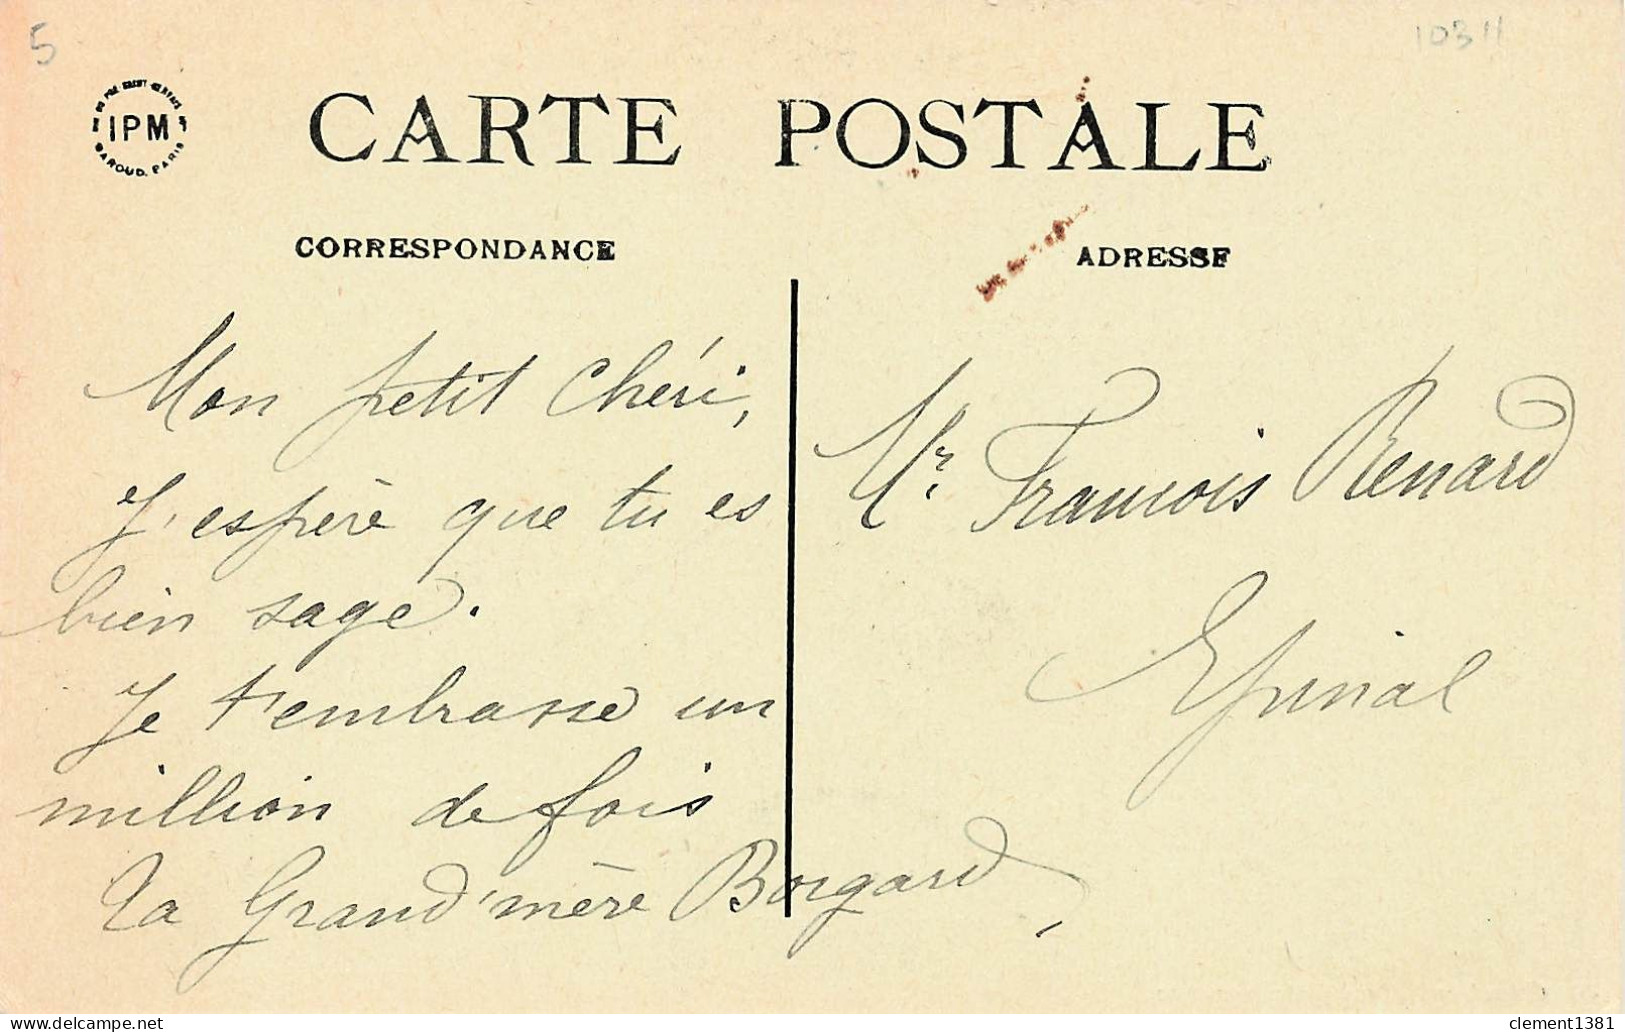 5
10311
IPM
BAROUD. PARIS
CARTE POSTALE
CORRESPONDANCE
ADRESSE
Mon petit Chéri,
J'espère que tu es
bien sage.
Je t'embrasse un
million de fois
Ta Grand'mère Borgard
Mr. Francois Renard
Epinal
delcampe.net
clement1381